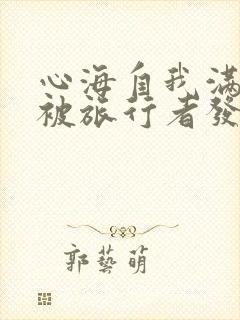 心海自我滿
被旅行者發
郭藝萌